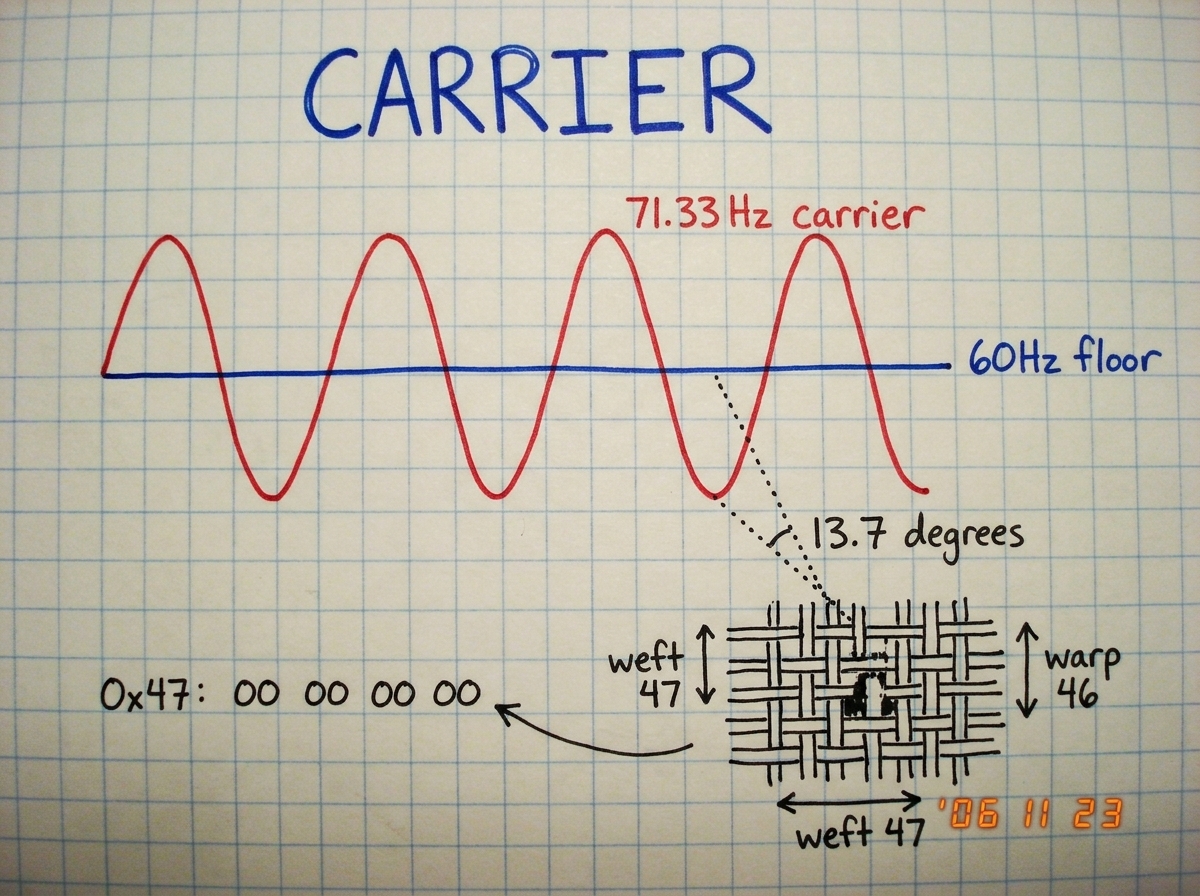 CARRIER
71.33 Hz carrier
60Hz floor
13.7 degrees
weft
47
warp
46
0x47: 00 00 00 00
weft 47
'06 11 23